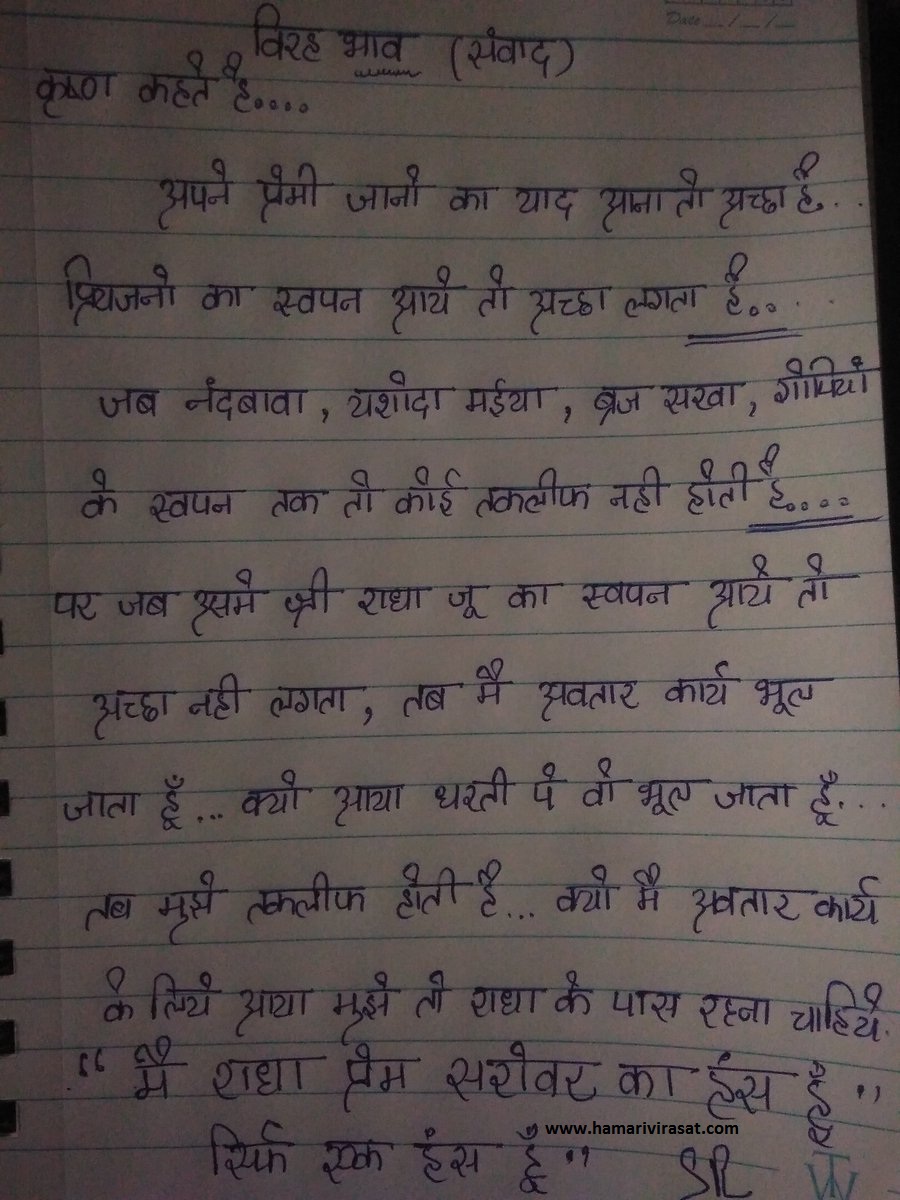 Date __/__/__
विरह भाव (संवाद)
कृष्ण कहते है....
अपने प्रेमी जानो का याद आना तो अच्छा है...
प्रियजनो का स्वपन आये तो अच्छा लगता है....
जब नंदबावा, यशोदा मईया, ब्रज सखा, गोपियों
के स्वपन तक तो कोई तकलीफ नही होती है....
पर जब इसमे श्री राधा जू का स्वपन आये तो
अच्छा नही लगता, तब मै अवतार कार्य भूल
जाता हूँ... क्यो आया धरती पे वो भूल जाता हूँ...
तब मुझे तकलीफ होती है... क्यो मै अवतार कार्य
के लिये आया मुझे तो राधा के पास रहना चाहिये.
“ मै राधा प्रेम सरोवर का हंस हूँ ”
www.hamarivirasat.com
सिर्फ एक हंस हूँ ”